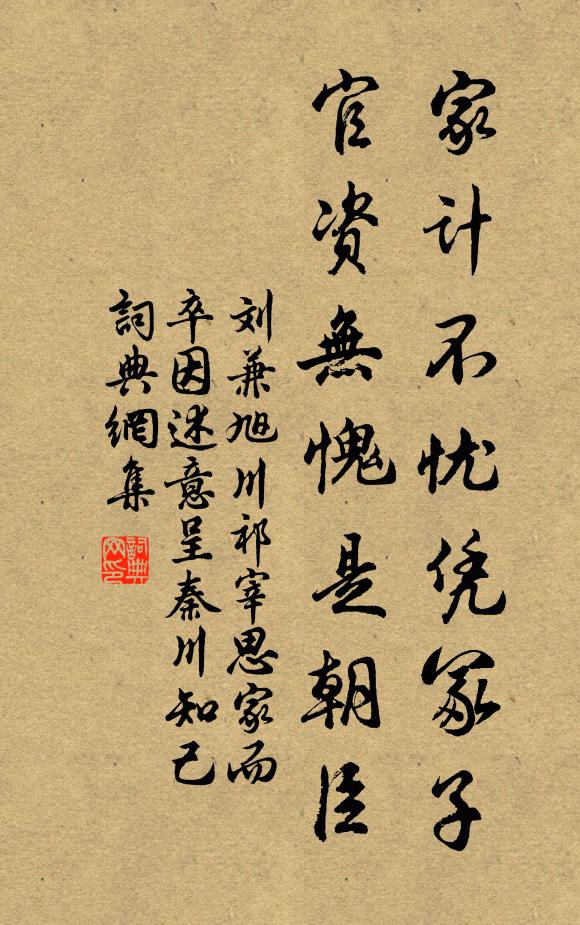 家计不忧凭冢子
官资無愧是朝臣
刘蒹旭川祁宰思家而
卒因述意呈秦川知己
詞典網集
詞典
网印